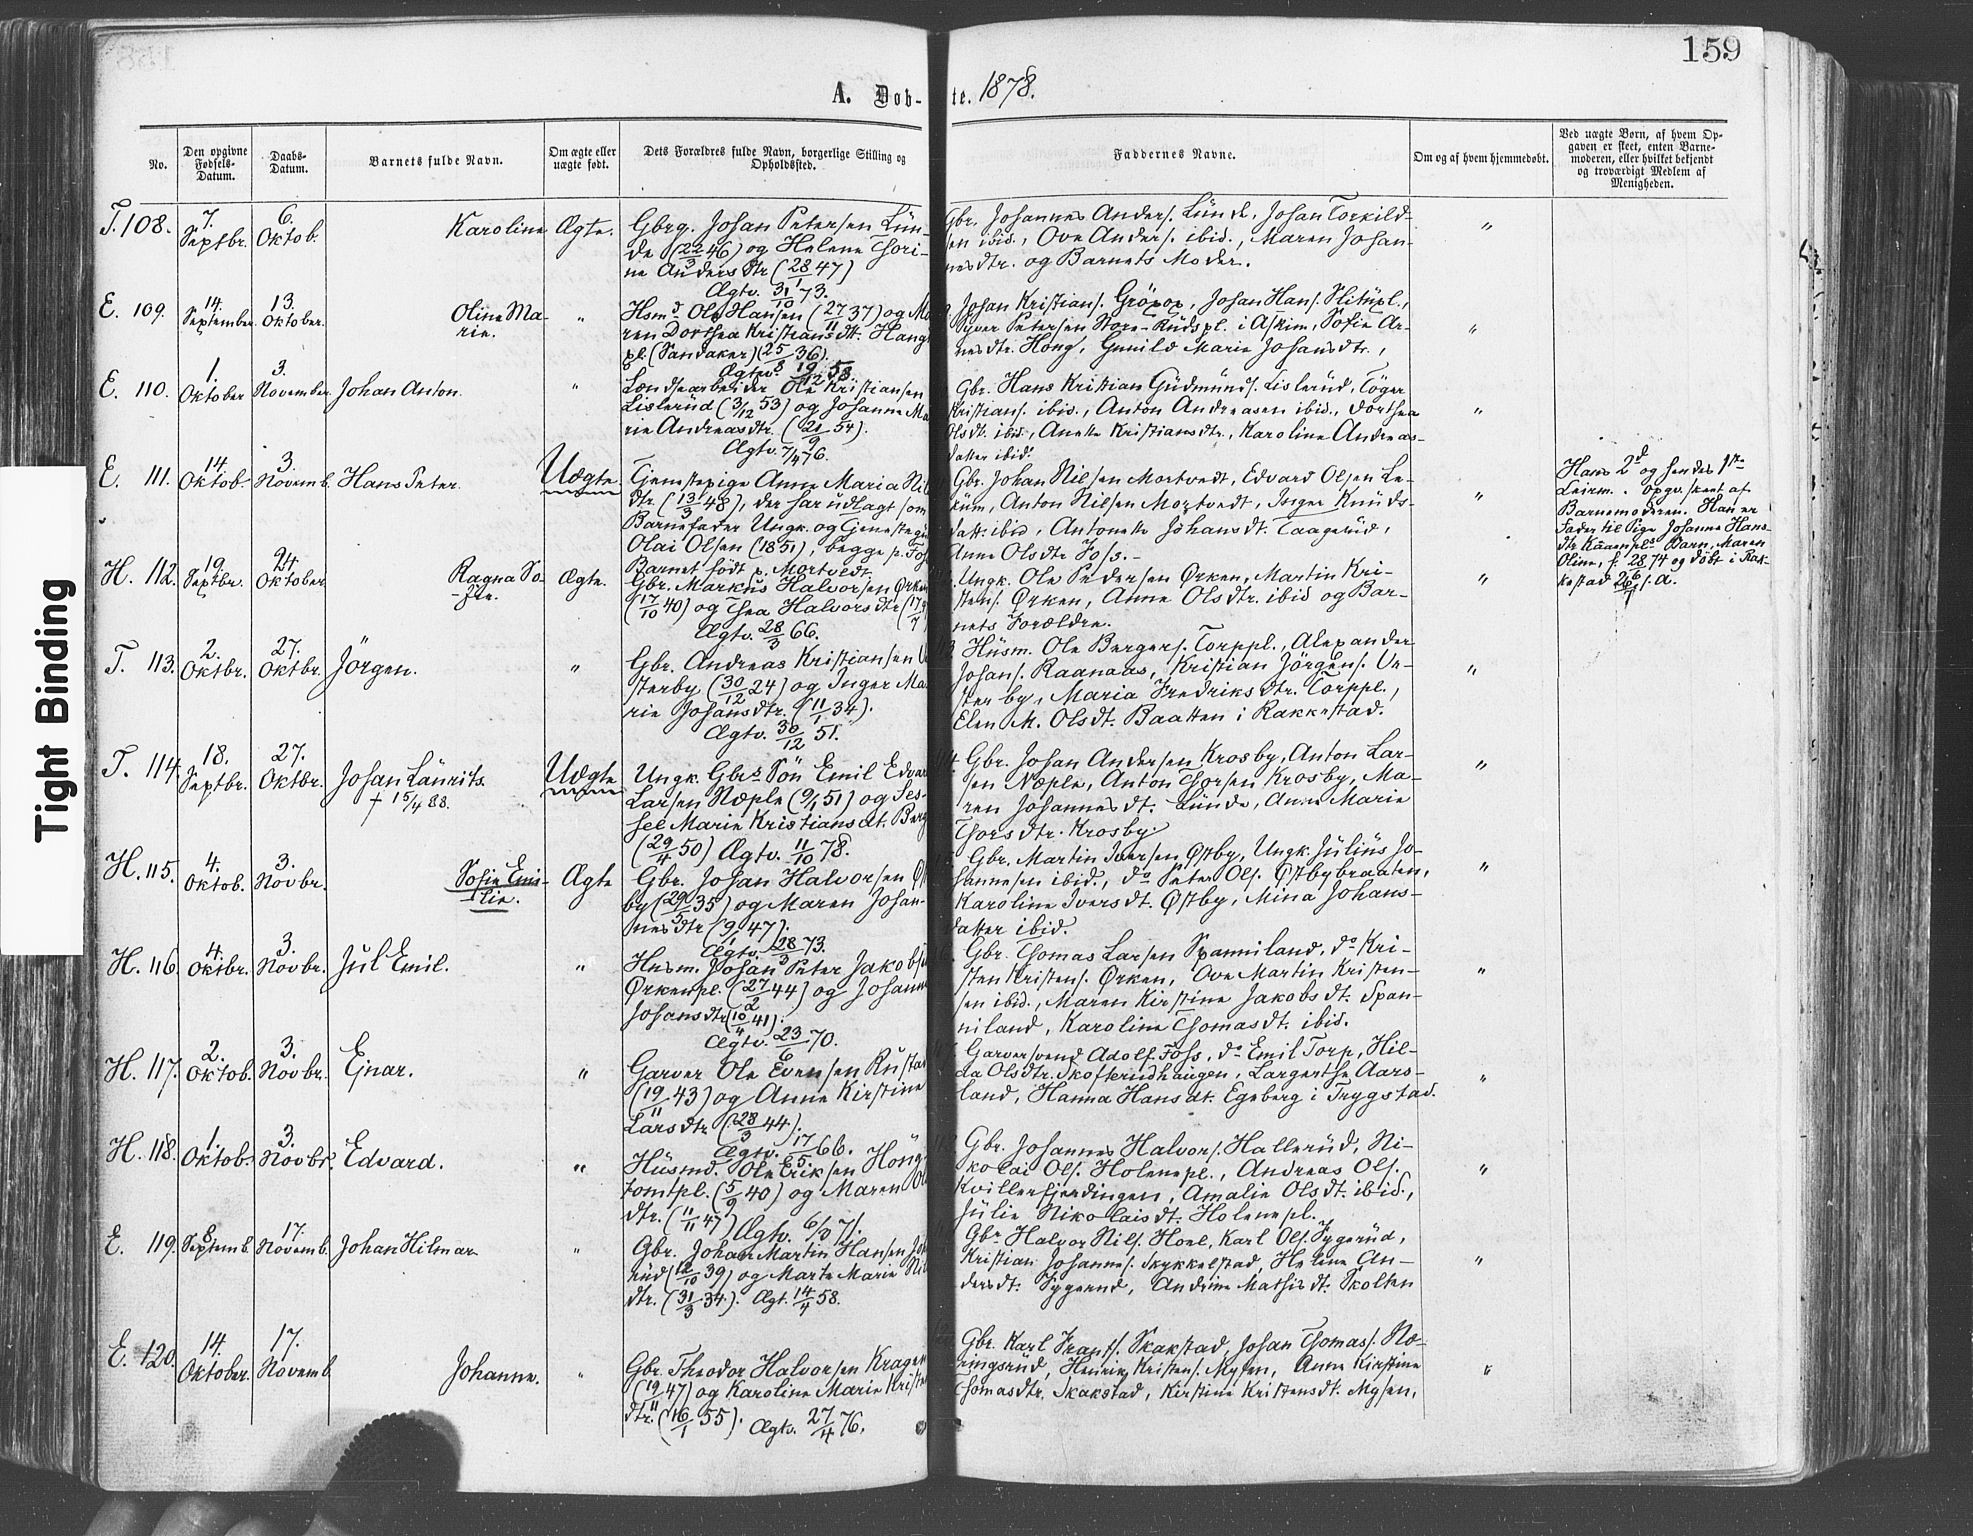 159
A. Døb-
te. 1878.
No.
Den opgivne Fødsels-Datum.
Daabs-Datum.
Barnets fulde Navn.
Om ægte eller uægte født.
Dets Forældres fulde Navn, borgerlige Stilling og Opholdssted.
Faddernes Navne.
Om og af hvem hjemmedøbt.
Ved uægte Børn, af hvem Op-
gaven er skeet, enten Barne-
moderen, eller hvilket bekjendt
og troværdigt Medlem af
Menigheden.
Tight Binding
T. 108. 7. Septbr. 6. Oktob. Karoline Ægte.
Gbrg. Johan Petersen Lun-
de (22/3 46) og Helene Thori-
ne Anders dtr (28/1 47)
Ægtv. 31/10 73.
Gbr. Johannes Anders. Lunde, Johan Torkild-
sen ibid., Ove Anders. ibid., Maren Johan-
nesdtr. og Barnets Moder.
"
E. 109. 14. September. 13. Oktober. Oline Ma-
rie. "
Hsmd. Ole Hansen (27/11 37) og Ma
ren Dorthea Kristiansdt. Hang
pl. (Sandaker) (25/8 36).
Ægtv. 19/12 58.
Johan Kristians. Gröxox, Johan Hans. Slitupl.,
Syver Petersen Store-Rudspl. i Askim, Sofie Ar-
nesdtr. Hong, Gunild Marie Johansdtr.,
"
E. 110. 1. Oktober 3. November. Johan Anton. "
Landsearbeider Ole Kristiansen
Lislerud (3/12 53) og Johanne Ma
rie Andreasdtr. (21/9 54).
Ægtv. 7/4 76.
Gbr. Hans Kristian Gudmunds. Lislerud, Töger
Kristians. ibid., Anton Andreasen ibid., Dorthea
Olsdt. ibid., Anette Kristiansdtr., Karoline Andreas-
datter ibid.
"
E. 111. 14. Oktob. 3. Novemb. Hans Peter. Uægte
Tjenestepige Anne Maria Nil
dtr. (13/3 48), der har udlagt som
Barnefader Ungk. og Tjenestegut
Olai Olsen (1851), begge p. Fos
Barnet födt p. Mortvedt
Gbr. Johan Nilsen Mortvedt, Edvard Olsen Le-
kum, Anton Nilsen Mortvedt, Inger Knuds-
datt. ibid, Antonette Johansdt. Taagerud,
Anne Olsdtr Foss.
"
Hans 2d og hendes 1ste
Leirm. Opgv. skeet af
Barnemoderen. Han er
Fader til Pige Johanne Hans-
dtr Kaaenpl.s Barn, Maren
Oline, f. 28/6 74 og döbt i Rak-
kestad 26/7 s. a.
H. 112. 19. Septbr. 24 Oktober Ragna So-
-fie. Ægte.
Gbr. Markus Halvorsen Ørken
(17/10 40) og Thea Halvorsdtr (17/7
Ægtv. 28/3 66.
Ungk. Ole Pedersen Ørken, Martin Kri-
stens. Ørken, Anne Olsdtr. ibid og Bar-
nets Forældre.
"
T. 113. 2. Oktbr. 27. Oktbr. Jörgen. "
Gbr. Andreas Kristiansen Ve
sterby (30/12 24) og Inger Ma
rie Johansdtr. (11/1 34).
Ægtv. 30/12 51.
Husm. Ole Bergers. Torppl., Alexander
Johans. Raanaas, Kristian Jörgens. Ve-
sterby, Maria Fredriksdtr. Torppl.,
Elen M. Olsdt. Baatten i Rakkestad.
"
T. 114. 18. Septbr. 27. Oktbr. Johan Laurits. Uægte
† 15/4 88.
Ungk. Gbrs Sön Emil Edvar
Larsen Næple (9/1 51) og Ses-
sel Marie Kristiansdt. Berg
(29/4 50) Ægtv. 11/10 78.
Gbr. Johan Andersen Krosby, Anton Lar-
sen Næple, Anton Thorsen Krosby, Ma-
ren Johannesdt. Lunde, Anne Marie
Thorsdtr. Krosby.
"
H. 115. 4. Oktob. 3. Novbr. Sofie Emi-
lie. Ægte
Gbr. Johan Halvorsen Øst
by (29/5 35) og Maren Johan-
nesdtr (9/1 47).
Ægtv. 28/3 73.
Gbr. Martin Iversen Østby, Ungk. Julius Jo-
hannesen ibid., do Peter Ols. Østbybraaten,
Karoline Iversdt. Østby, Mina Johans-
datter ibid.
"
H. 116. 4. Oktbr. 3. Novbr. Jul Emil. "
Husm. Johan Peter Jakobsen
Ørkenpl. (27/2 44) og Johanne
Johansdtr (10/4 41).
Ægtv. 23/6 70.
Gbr. Thomas Larsen Spanniland, do Kri-
sten Kristens. Ørken, Ove Martin Kristen-
sen ibid., Maren Kirstine Jakobsdt. Span-
niland, Karoline Thomasdt. ibid.
"
H. 117. 2. Oktob. 3. Novbr. Ejnar. "
Garver Ole Evensen Rustad
(19/11 43) og Anne Kirstine
Larsdtr (28/3 44).
Ægtv. 17/5 66.
Garversvend Adolf Foss, do Emil Torp, Hil-
da Olsdtr. Skofterudhaugen, Largerthe Aars-
land, Hanna Hansdt. Egeberg i Trygstad.
"
H. 118. 1. Oktob. 3. Novbr. Edvard. "
Husmd. Ole Eriksen Höng-
tomtpl. (5/9 40) og Maren Ol
dtr. (11/11 47) Ægtv. 6/3 71.
Gbr. Johannes Halvors. Hallerud, Ni-
kolai Ols. Holenepl., Andreas Ols.
Kvillerfjerdingen, Amalie Olsdt. ibid.,
Julie Nikolaisdt. Holenepl.
"
E. 119. 8. Septemb. 17. Novemb. Johan Hilmar "
Gbr. Johan Martin Hansen
rud (12/10 39) og Marte Marie Nil
dtr. (31/3 34). Ægt. 14/4 58.
Gbr Halvor Nils. Hoel, Karl Ols. Sygerud,
Kristian Johannes. Skykkelstad, Helene An-
dersdt. Sygerud, Andrine Mathisdt. Skolten
"
E. 120. 14. Oktober. 17. Novemb. Johanne. "
Gbr. Theodor Halvorsen Kragen
(19/11 47) og Karoline Marie Kristen
dtr. (16/1 55). Ægtv. 27/4 76.
Gbr. Karl Frants. Skakstad, Johan Thomas. Næ-
ringsrud, Henrik Kristens. Mysen, Anne Kirstine
Thomasdtr. Skakstad, Kirstine Kristensdt. Mysen.
"